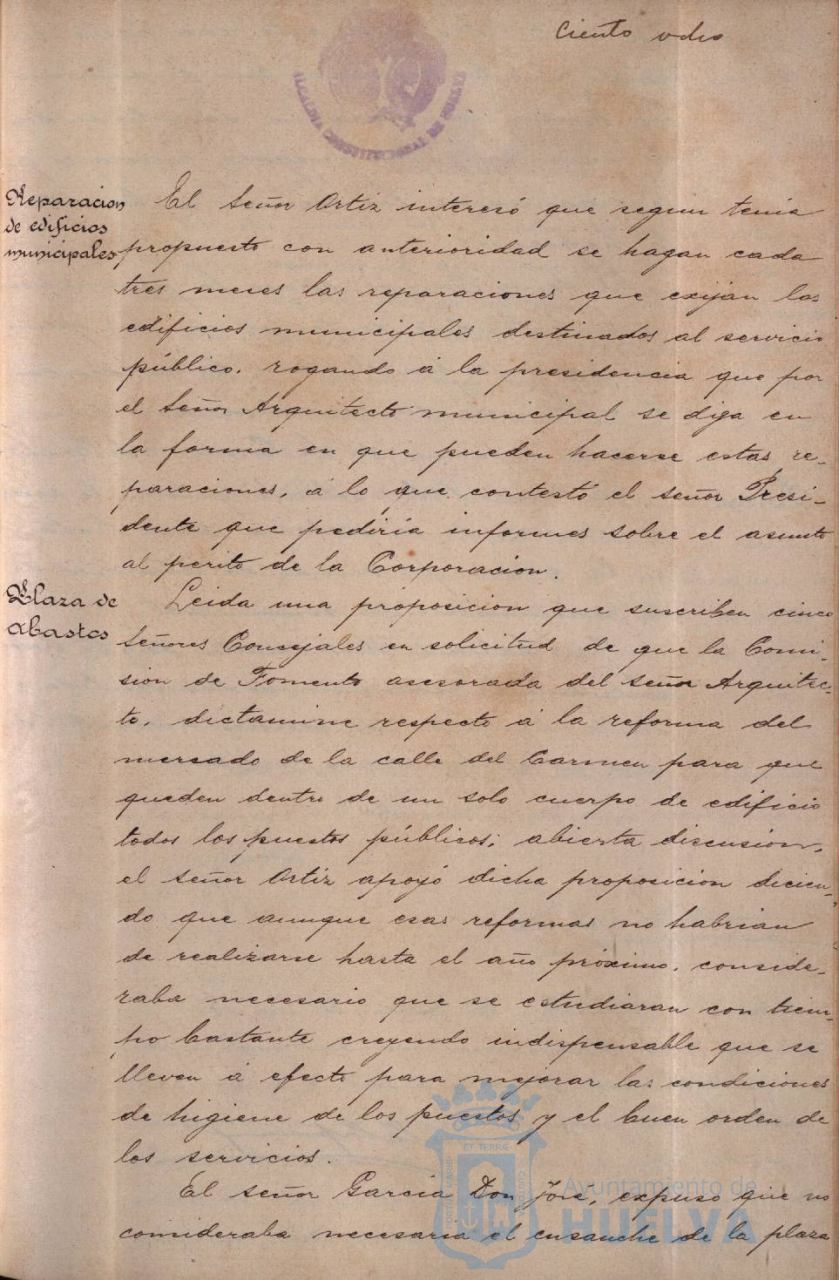 Ciento odio
ALCALDIA CONSTITUCIONAL DE HUELVA
Reparacion
de edificios
municipales
El Señor Ortiz interesó que segun tenia
propuesto con anterioridad se hagan cada
tres meses las reparaciones que exijan los
edificios municipales destinados al servicio
público. rogando á la presidencia que por
el Señor Arquitecto municipal se diga en
la forma en que pueden hacerse estas re-
paraciones, á lo que contestó el señor Presi-
dente que pediría informes sobre el asunto
al perito de la Corporacion.
Plaza de
Abastos
Leida una proposicion que suscriben cinco
Señores Consejales en solicitud de que la Comi-
sion de Fomento asesorada del señor Arquitec-
to, dictamine respecto á la reforma del
mercado de la calle del Carmen para que
queden dentro de un solo cuerpo de edificio
todos los puestos públicos; abierta discusion,
el señor Ortiz apoyó dicha proposicion dicien-
do que aunque esas reformas no habrian
de realizarse hasta el año próximo, conside-
raba necesario que se estudiaran con tiem-
po bastante creyendo indispensable que se
lleven á efecto para mejorar las condiciones
de higiene de los puestos y el buen orden de
los servicios.
El señor Garcia Don José, expuso que no
consideraba necesaria el ensanche de la plaza
Ayuntamiento de
HUELVA